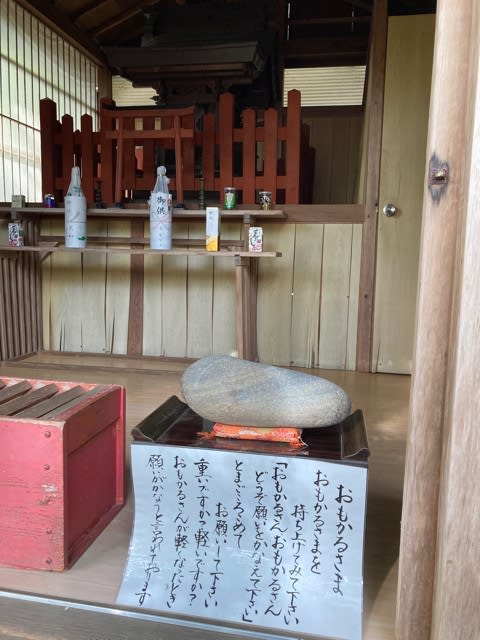 おもかるさま
おもかるさまを
持ち上げてみて下さい
「おもかるさんおもかるさん
どうぞ願いをかなえて下さい」
とまごころこめて
お願いして下さい
重いですか?軽いですか?
おもかるさんが軽くなったとき
願いがかなうと言われております
御供